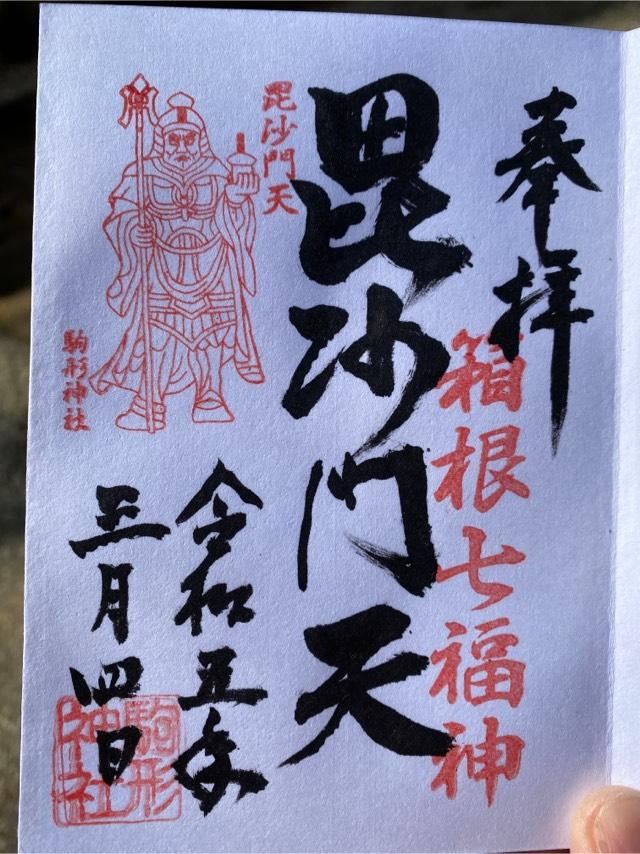 奉拝
箱根七福神
毘沙門天
毘沙門天
駒形神社
令和五年
三月四日
駒形
神社